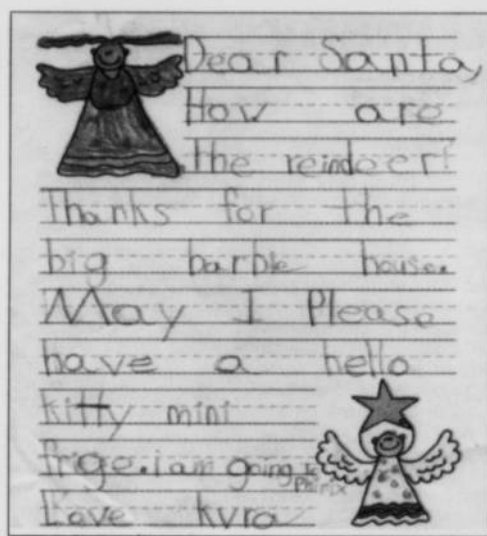 Dear Santa,
How are
the reindeer?
Thanks for the
big barbie house.
May I Please
have a hello
kitty mini
frige. i am going to
Phinix
Love kyra